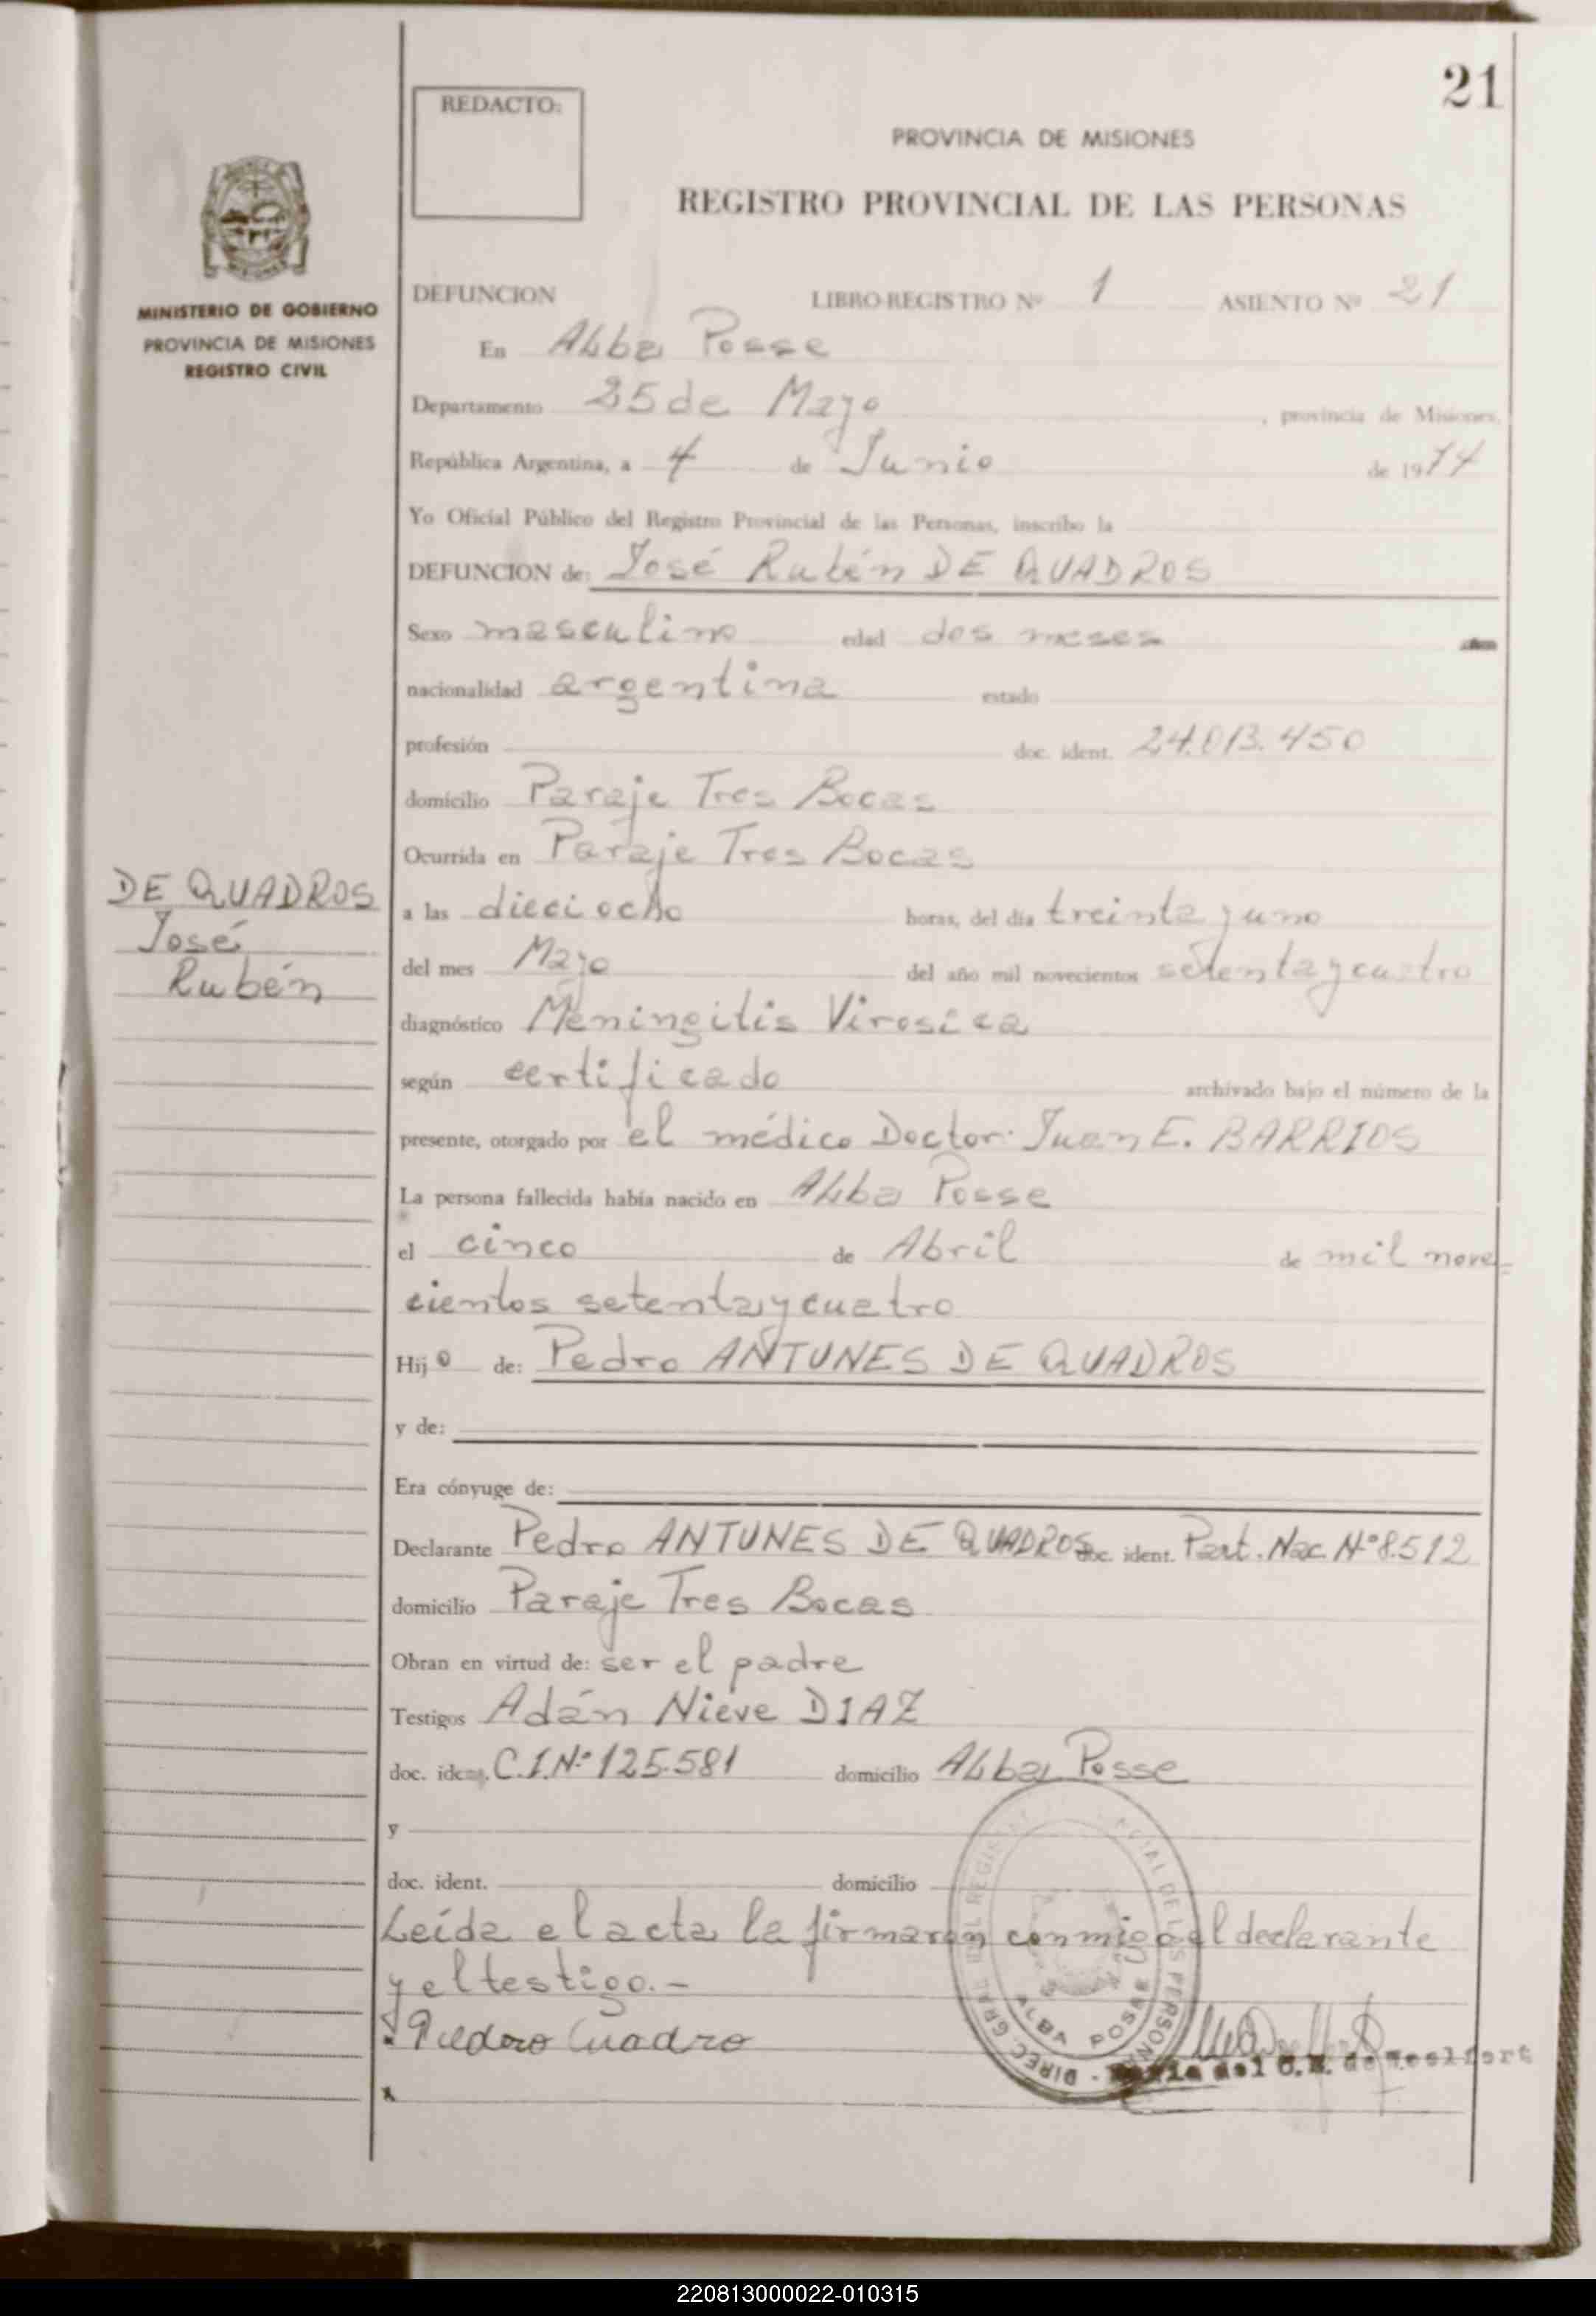 21
REDACTO:
PROVINCIA DE MISIONES
REGISTRO PROVINCIAL DE LAS PERSONAS
MINISTERIO DE GOBIERNO
PROVINCIA DE MISIONES
REGISTRO CIVIL
DEFUNCION LIBRO-REGISTRO Nº 1 ASIENTO Nº 21
En Alba Posse
Departamento 25 de Mayo , provincia de Misiones,
República Argentina, a 4 de Junio de 1974
Yo Oficial Público del Registro Provincial de las Personas, inscribo la
DEFUNCION de: José Rubén DE QUADROS
Sexo masculino edad dos meses
nacionalidad argentina estado
profesión doc. ident. 24.013.450
domicilio Paraje Tres Bocas
Ocurrida en Paraje Tres Bocas
DE QUADROS
José
Rubén
a las dieciocho horas, del día treinta y uno
del mes Mayo del año mil novecientos setenta y cuatro
diagnóstico Meningitis Virosica
según certificado archivado bajo el número de la
presente, otorgado por el médico Doctor Juan E. BARRIOS
La persona fallecida había nacido en Alba Posse
el cinco de Abril de mil nove-
cientos setenta y cuatro
Hijo de: Pedro ANTUNES DE QUADROS
y de:
Era cónyuge de:
Declarante Pedro ANTUNES DE QUADROS doc. ident. Part. Nac. Nº 8512
domicilio Paraje Tres Bocas
Obran en virtud de: ser el padre
Testigos Adán Nieve DIAZ
doc. ident. C.I.Nº 125.581 domicilio Alba Posse
y
doc. ident. domicilio
Leída el acta la firmaron conmigo el declarante
y el testigo.-
Piedro Cuadro
DIREC. GRAL. DEL REGIS DE LAS PERSONAS
ALBA POSSE
220813000022-010315